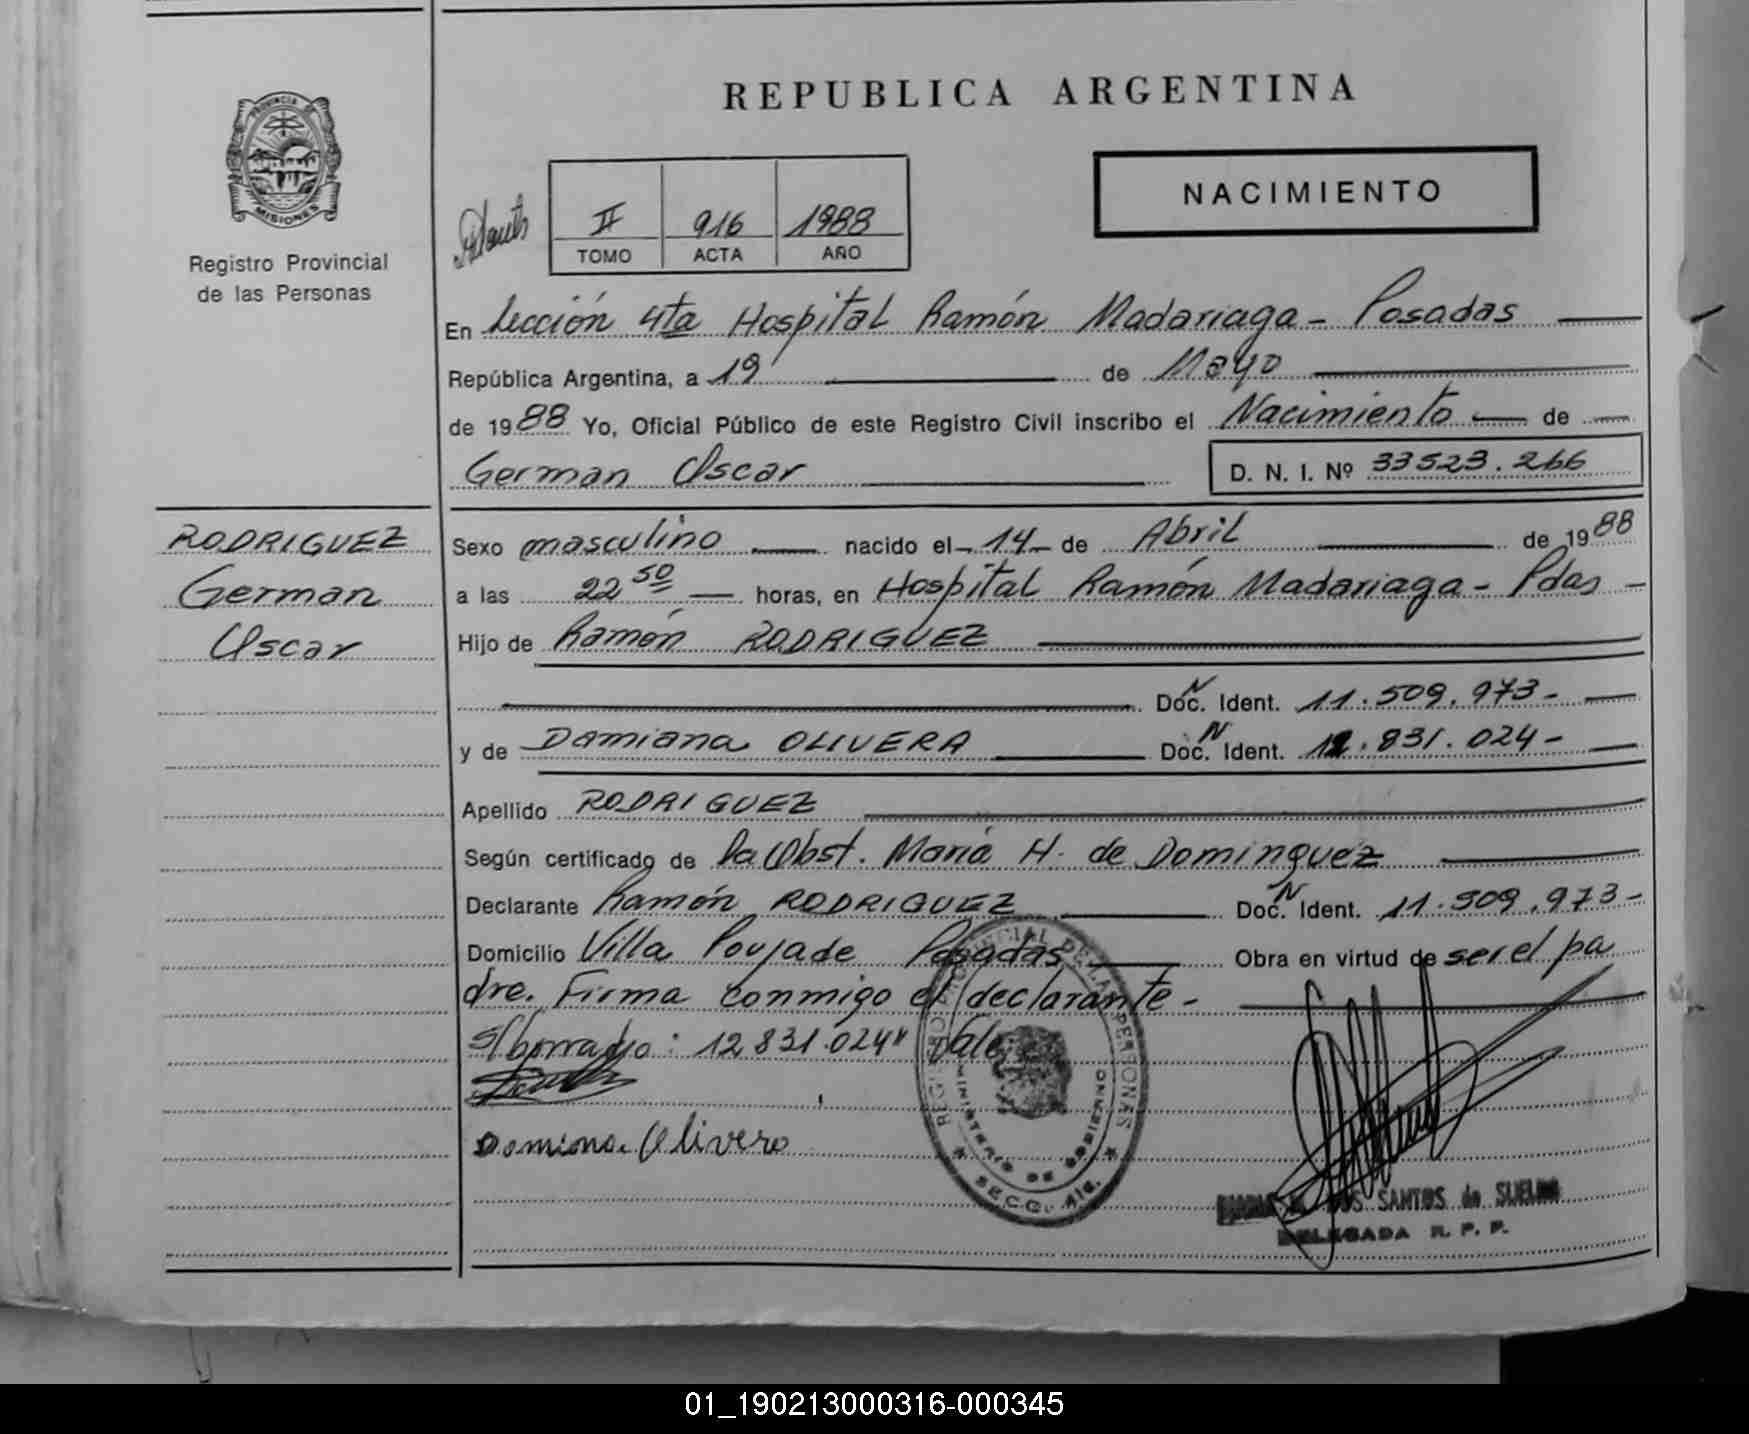 PROVINCIA DE
MISIONES
Registro Provincial
de las Personas
REPUBLICA ARGENTINA
NACIMIENTO
II 916 1988
TOMO ACTA AÑO
En Sección 4ta Hospital Ramón Madariaga - Posadas
República Argentina, a 19 de Mayo
de 1988 Yo, Oficial Público de este Registro Civil inscribo el Nacimiento de
German Oscar D. N. I. Nº 33523.266
RODRIGUEZ
German
Oscar
Sexo masculino nacido el - 14 - de Abril de 1988
a las 22 50 horas, en Hospital Ramón Madariaga - Pdas -
Hijo de Ramón RODRIGUEZ
Doc. N Ident. 11.509.973-
y de Damiana OLIVERA Doc. N Ident. 12.831.024-
Apellido RODRIGUEZ
Según certificado de la Obst. María H. de Dominguez
Declarante Ramón RODRIGUEZ Doc. N Ident. 11.509.973-
Domicilio Villa Poujade Posadas Obra en virtud de ser el pa
dre. Firma conmigo el declarante -
S/borrado: 12831.024" Vale
Domiona Olivero
REGISTRO PROVINCIAL DE LAS PERSONAS
MINISTERIO DE GOBIERNO
SECC. 4ta.
DOS SANTOS de
DELEGADA R. P. P.
01_190213000316-000345